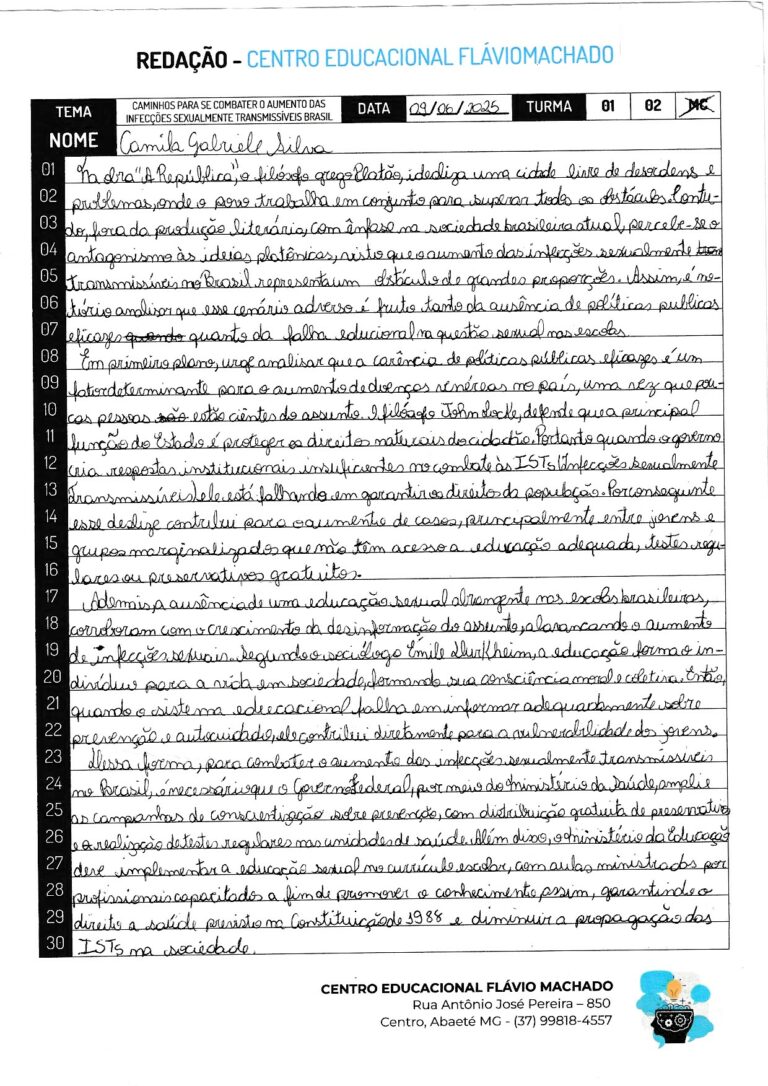 REDAÇÃO - CENTRO EDUCACIONAL FLÁVIOMACHADO
TEMA CAMINHOS PARA SE COMBATER O AUMENTO DAS INFECÇÕES SEXUALMENTE TRANSMISSÍVEIS BRASIL DATA 09/06/2025 TURMA 01 02 MC
NOME Camila Gabriele Silva
01 Na obra "A República", o filósofo grego Platão, idealiza uma cidade livre de desordens e
02 problemas, onde o povo trabalha em conjunto para superar todos os obstáculos. Contu-
03 do, fora da produção literária, com ênfase na sociedade brasileira atual, percebe-se o
04 antagonismo às ideias platônicas, visto que o aumento das infecções sexualmente
05 transmissíveis no Brasil representa um obstáculo de grandes proporções. Assim, é no-
06 tório analisar que esse cenário adverso é fruto tanto da ausência de políticas publicas
07 eficazes quando quanto da falha educional na questão sexual nas escolas.
08 Em primeiro plano, urge analisar que a carência de políticas públicas eficazes é um
09 fator determinante para o aumento de doenças venéreas no país, uma vez que pou-
10 cas pessoas são estão cientes do assunto. O filósofo John Locke, defende que a principal
11 função do Estado é proteger os direitos naturais do cidadão. Portanto quando o governo
12 cria respostas institucionais insuficientes no combate às ISTs (Infecções sexualmente
13 Transmissíveis) ele está falhando em garantir os direitos da população. Por conseguinte
14 esse deslize contribui para o aumento de casos, principalmente entre jovens e
15 grupos marginalizados que não têm acesso a educação adequada, testes regu-
16 lares ou preservativos gratuitos.
17 Ademais, a ausência de uma educação sexual abrangente nas escolas brasileiras,
18 corroboram com o crescimento da desinformação do assunto, alavancando o aumento
19 de infecções sexuais. Segundo o sociólogo Émile Durkheim, a educação forma o in-
20 divíduo para a vida em sociedade, formando sua consciência moral e coletiva. Então,
21 quando o sistema educacional falha em informar adequadamente sobre
22 prevenção e autocuidado, ele contribui diretamente para a vulnerabilidade dos jovens.
23 Dessa forma, para combater o aumento das infecções sexualmente transmissíveis
24 no Brasil, é necessário que o Governo Federal, por meio do Ministério da Saúde, amplie
25 as campanhas de conscientização sobre prevenção, com distribuição gratuita de preservativo
26 e a realização de testes regulares nas unidades de saúde. Além disso, o ministério da Educação
27 deve implementar a educação sexual no currículo escolar, com aulas ministradas por
28 profissionais capacitados a fim de promover o conhecimento assim, garantindo o
29 direito a saúde previsto na Constituição de 1988 e diminuir a propagação das
30 ISTs na sociedade.
CENTRO EDUCACIONAL FLÁVIO MACHADO
Rua Antônio José Pereira – 850
Centro, Abaeté MG - (37) 99818-4557